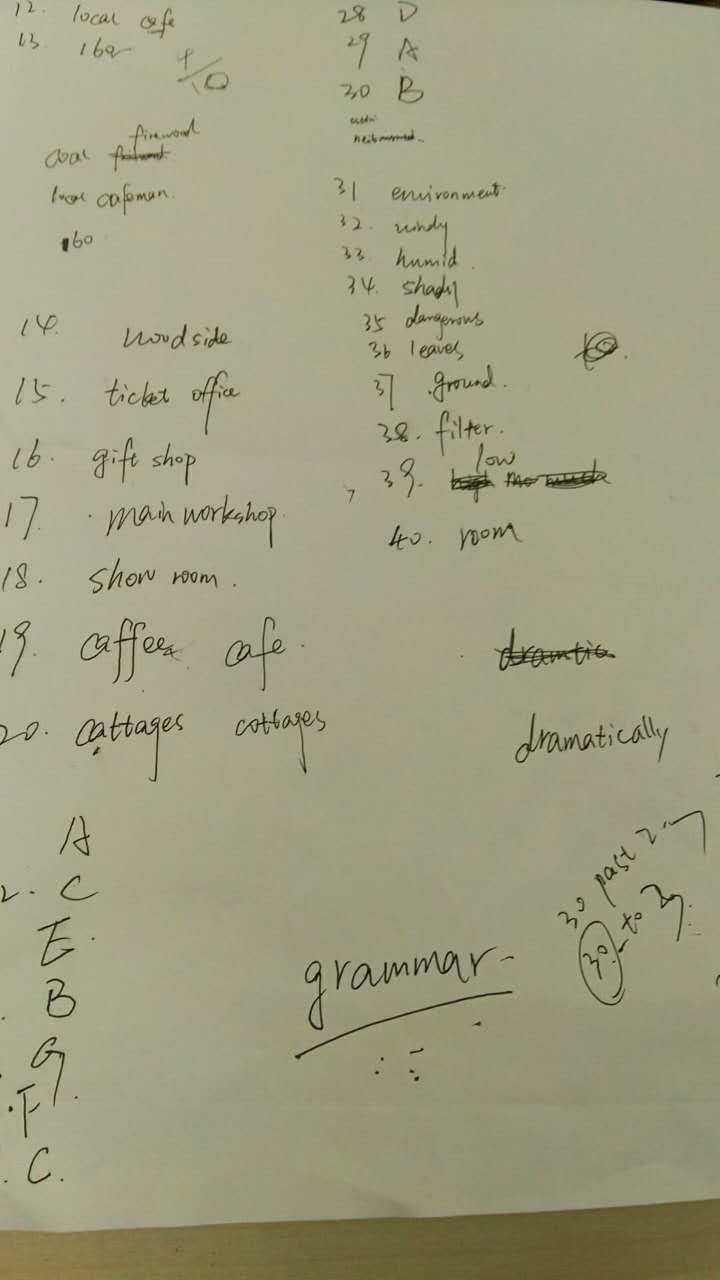 12. local cafe
13. 160
coal firewood
local cafeman.
160
14. woodside
15. ticket office
16. gift shop
17. main workshop.
18. show room.
19. caffee cafe.
20. cattages cottages
A
2. C
E.
B
G
F
C.
28 D
29 A
30 B
31 environment.
32. windy
33. humid.
34. shady
35 dangerous
36 leaves
37 ground.
38. filter.
39. low
40. room
dramatically
30 past 2.
30. to 3.
grammar-